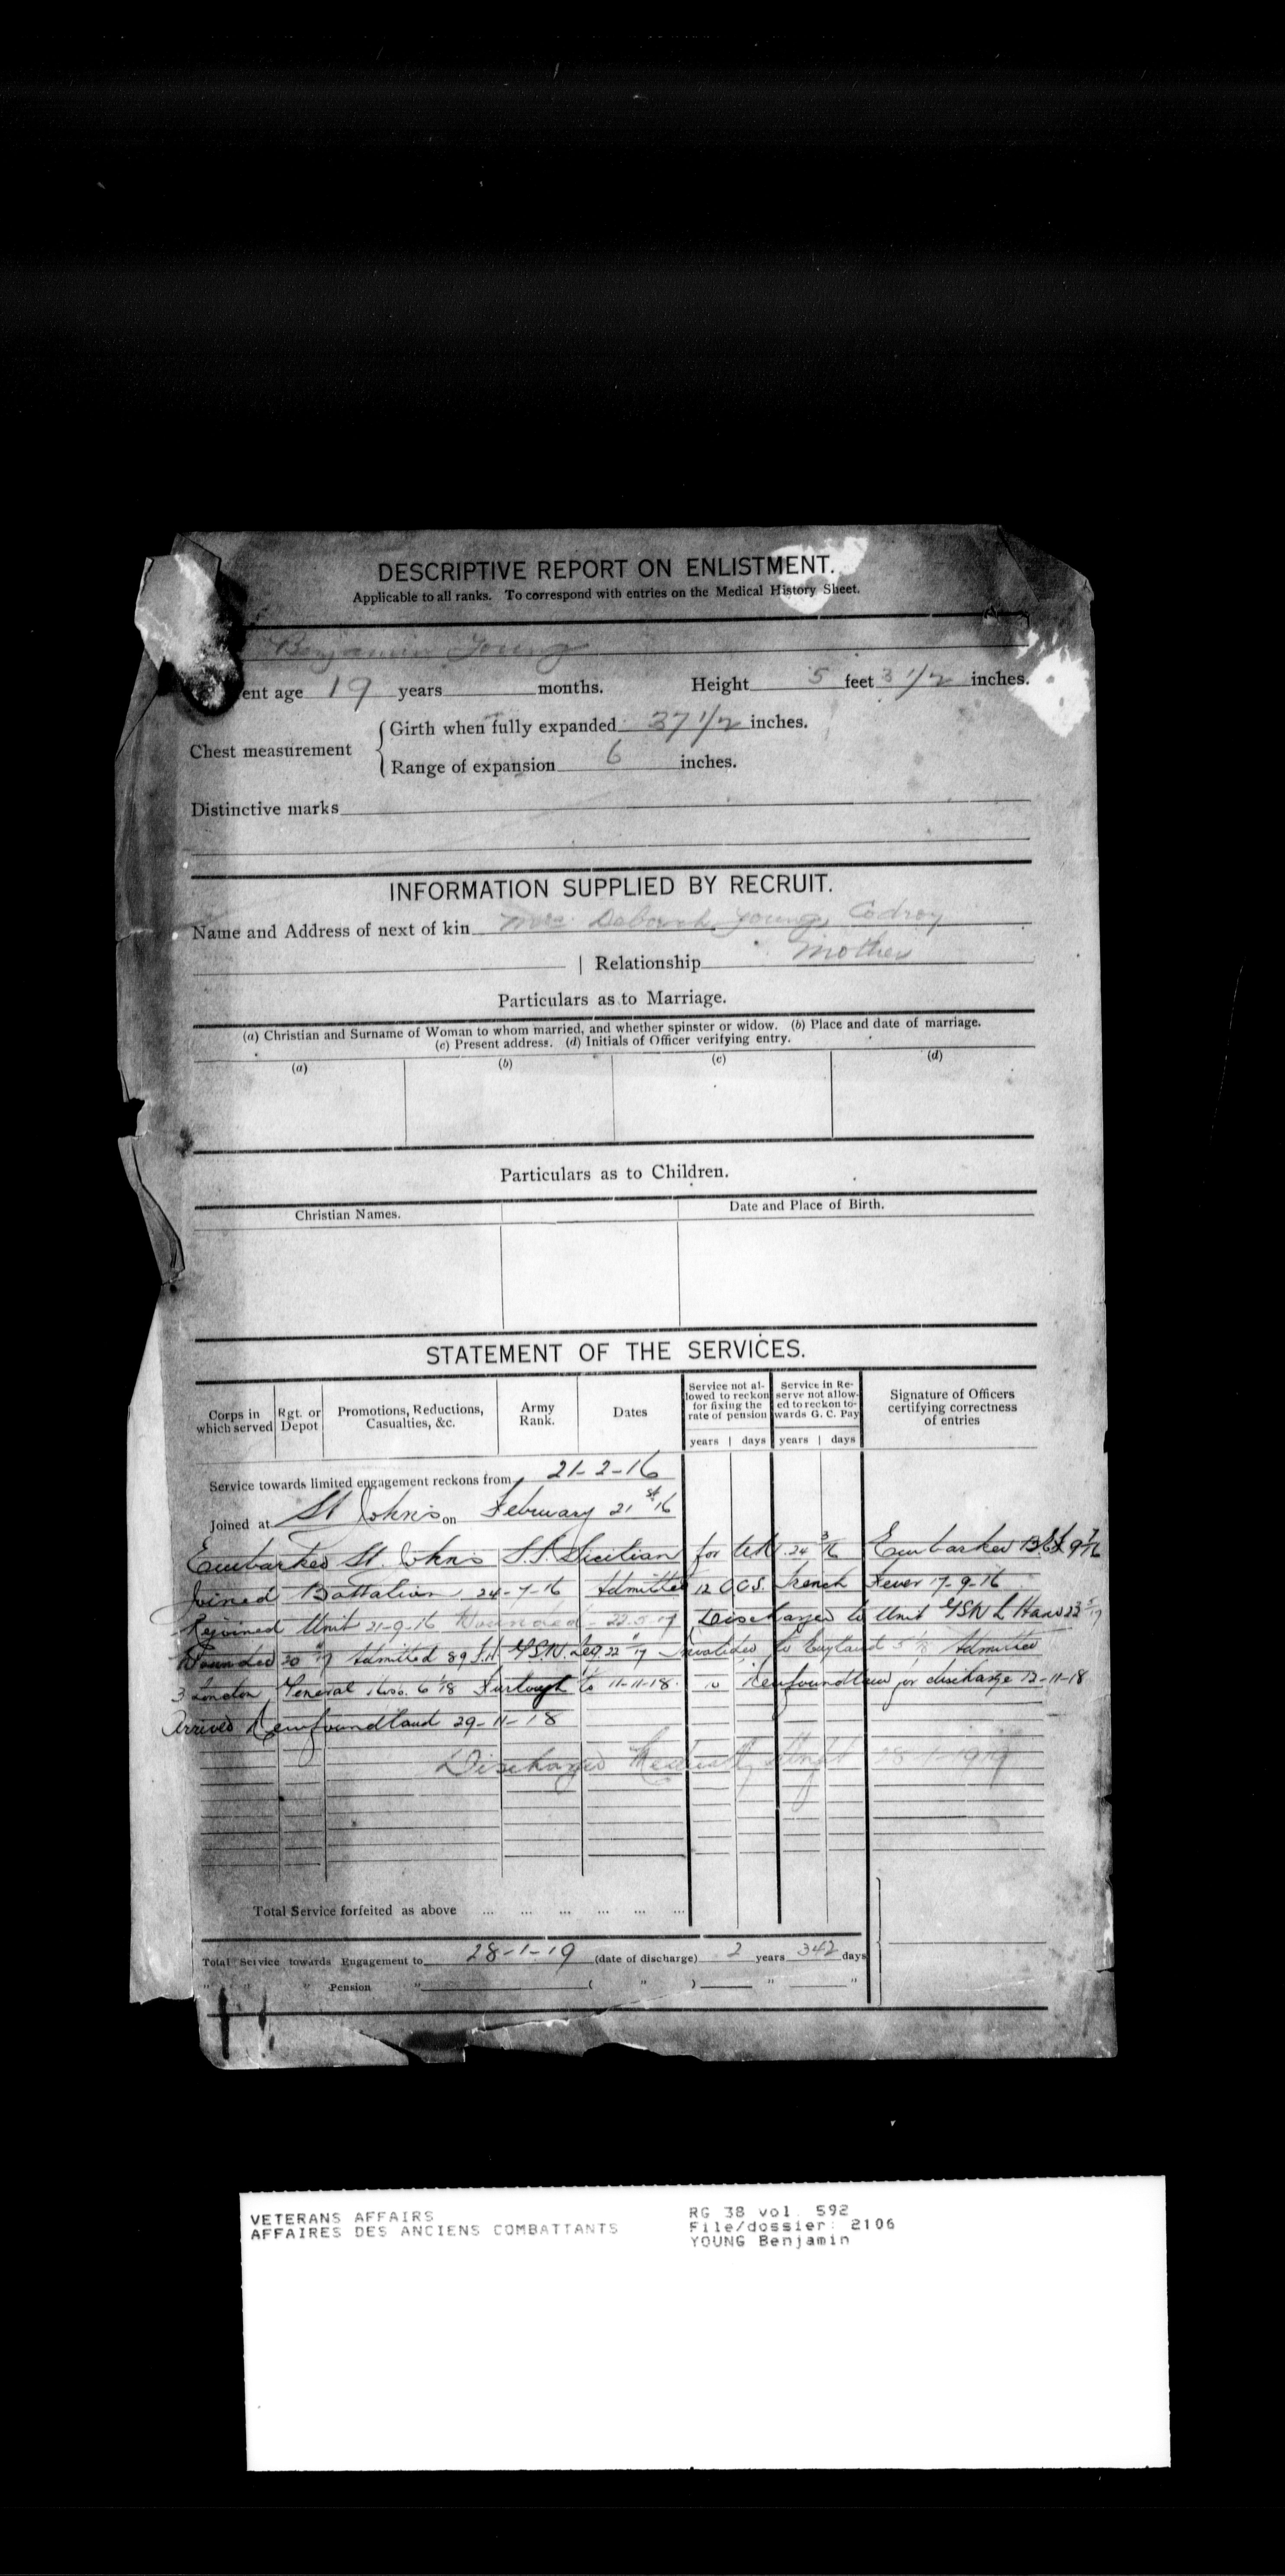 DESCRIPTIVE REPORT ON ENLISTMENT.
Applicable to all ranks. To correspond with entries on the Medical History Sheet.
Benjamin Young
ent age 19 years months. Height 5 feet 3 1/2 inches.
Chest measurement
Girth when fully expanded 37 1/2 inches.
Range of expansion 6 inches.
Distinctive marks
INFORMATION SUPPLIED BY RECRUIT.
Name and Address of next of kin Mrs. Deborah Young, Codroy
| Relationship Mother
Particulars as to Marriage.
(a) Christian and Surname of Woman to whom married, and whether spinster or widow. (b) Place and date of marriage.
(c) Present address. (d) Initials of Officer verifying entry.
(a) (b) (c) (d)
Particulars as to Children.
Christian Names. Date and Place of Birth.
STATEMENT OF THE SERVICES.
Corps in which served
Rgt. or Depot
Promotions, Reductions, Casualties, &c.
Army Rank.
Dates
Service not allowed to reckon for fixing the rate of pension
Service in Reserve not allowed to reckon towards G. C. Pay
Signature of Officers certifying correctness of entries
years | days years | days
Service towards limited engagement reckons from 21-2-16
Joined at St Johns on February 21st 16
Embarked St. Johns S.S. Sicilian for UK 24 3/16 Embarked
Joined Battalion 24-7-16 Admitted 12 C.C.S. Trench Fever 17-9-16
Rejoined Unit 21-9-16 Wounded 22.5.17 Discharged to Unit GSW L Hand 23
Wounded 30 Admitted 89 GSW. Leg Invalided to England 5 Admitted
3 London General Hosp. 6 1/18 Furlough to 11-11-18. To Newfoundland for discharge 12-11-18
Arrived Newfoundland 29-11-18
Discharged Medically Unfit 28-1-1919
Total Service forfeited as above ... ... ... ... ... ...
Total Service towards Engagement to 28-1-19 (date of discharge) 2 years 342 days
" " " Pension " ( " ) " "
VETERANS AFFAIRS
AFFAIRES DES ANCIENS COMBATTANTS
RG 38 vol. 592
File/dossier: 2106
YOUNG Benjamin